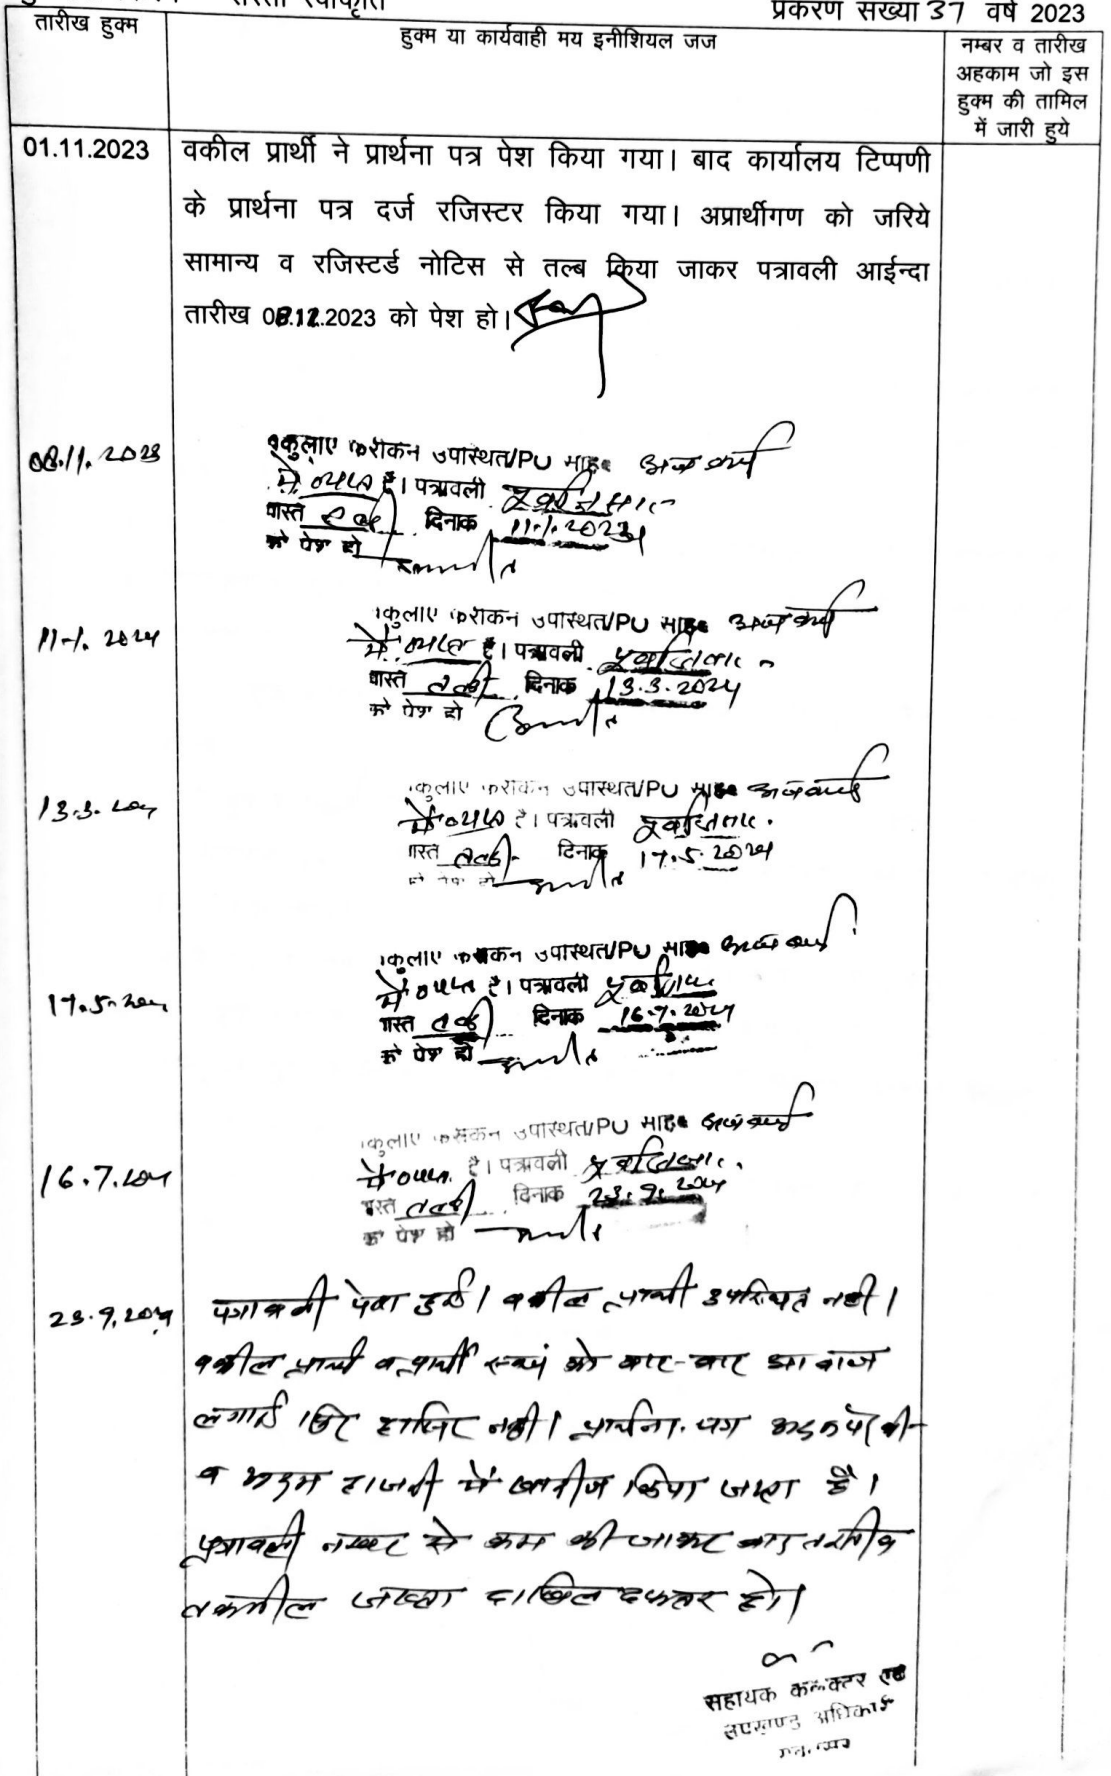 रास्ता स्वीकृति
प्रकरण संख्या 37 वर्ष 2023
तारीख हुक्म
हुक्म या कार्यवाही मय इनीशियल जज
नम्बर व तारीख
अहकाम जो इस
हुक्म की तामिल
में जारी हुये
01.11.2023
वकील प्रार्थी ने प्रार्थना पत्र पेश किया गया। बाद कार्यालय टिप्पणी
के प्रार्थना पत्र दर्ज रजिस्टर किया गया। अप्रार्थीगण को जरिये
सामान्य व रजिस्टर्ड नोटिस से तल्ब किया जाकर पत्रावली आईन्दा
तारीख 08.12.2023 को पेश हो।
08.11.2023
वकुलाए फरीकेन उपस्थित/PO साहब अन्य कार्य
में व्यस्त है। पत्रावली पूर्वानुसार
वास्ते तलबी दिनांक 11.1.2024
को पेश हो
11.1.2024
वकुलाए फरीकेन उपस्थित/PO साहब अन्य कार्य
में व्यस्त है। पत्रावली
वास्ते तलबी दिनांक 13.3.2024
को पेश हो
13.3.2024
वकुलाए फरीकेन उपस्थित/PO साहब अन्य कार्य
में व्यस्त है। पत्रावली
वास्ते तलबी दिनांक 17.5.2024
को पेश हो
17.5.2024
वकुलाए फरीकेन उपस्थित/PO साहब अन्य कार्य
में व्यस्त है। पत्रावली
वास्ते तलबी दिनांक 16.7.2024
को पेश हो
16.7.2024
वकुलाए फरीकेन उपस्थित/PO साहब अन्य कार्य
में व्यस्त है। पत्रावली
वास्ते तलबी दिनांक 23.9.2024
को पेश हो
23.9.2024
पत्रावली पेश हुई। वकील प्रार्थी उपस्थित नहीं।
वकील प्रार्थी व प्रार्थी स्वयं को बार-बार आवाज
लगाई गई हाजिर नहीं। प्रार्थना पत्र अदम पैरवी
व अदम हाजरी में खारीज किया जाता है।
पत्रावली नम्बर से कम की जाकर बाद तरतीब
तकमील जाब्ता दाखिल दफ्तर हो।
सहायक कलक्टर एवं
उपखण्ड अधिकारी